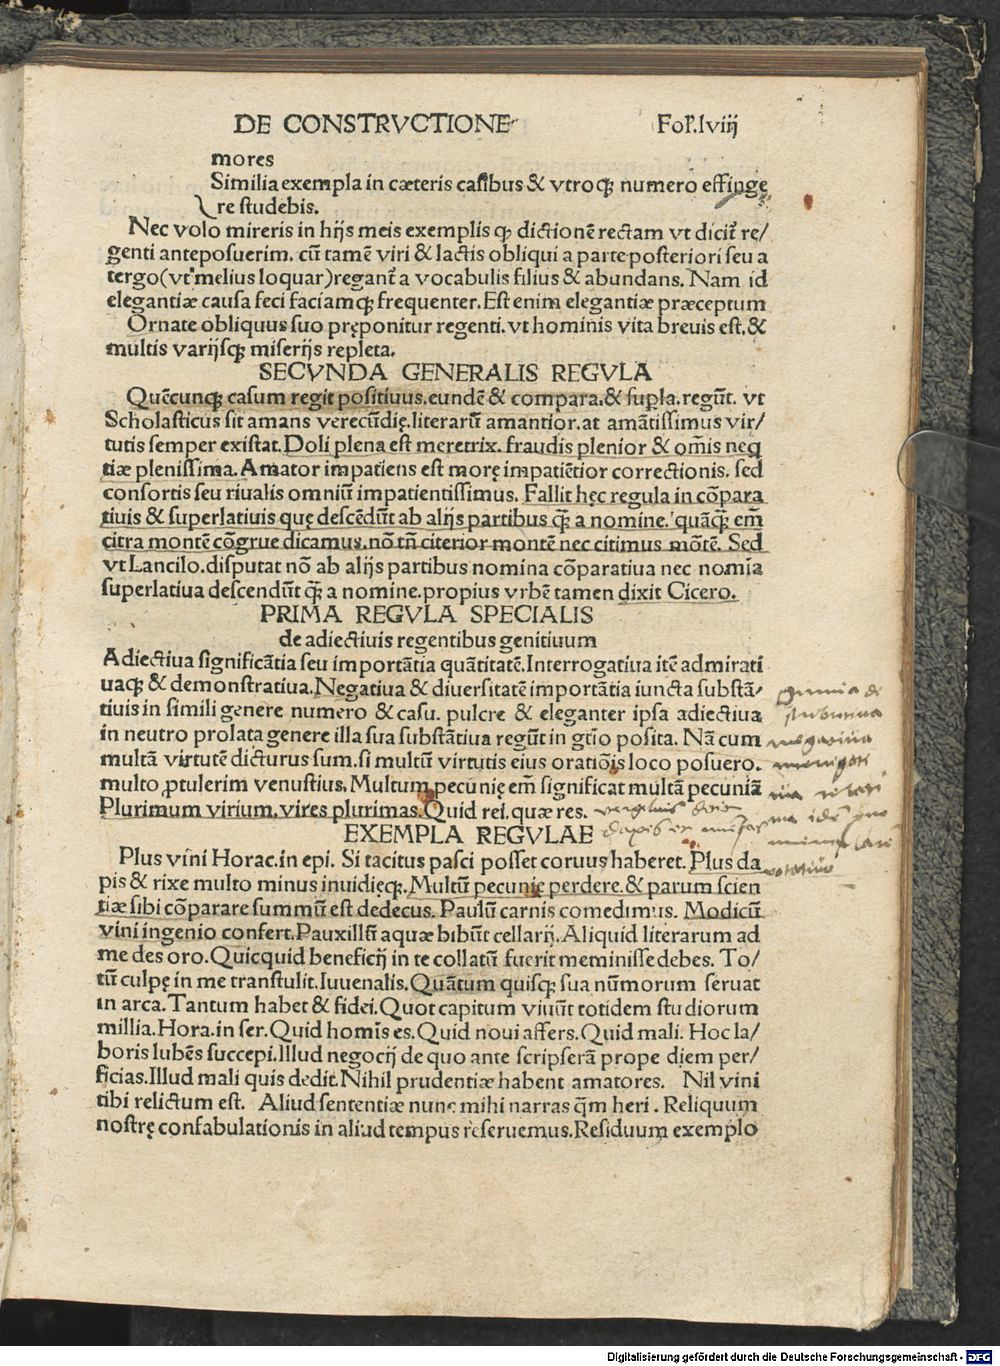 DE CONSTRVCTIONE Fol'.lviij
mores
Similia exempla in cæteris casibus & vtroqꝫ numero effinge
re studebis.
Nec volo mireris in hijs meis exemplis qꝫ dictionē rectam vt dicit' re/
genti anteposuerim. cū tamē viri & lactis obliqui a parte posteriori seu a
tergo(vt melius loquar)regant' a vocabulis filius & abundans. Nam id
elegantiæ causa feci faciamqꝫ frequenter. Est enim elegantiæ præceptum
Ornate obliquus suo pręponitur regenti. vt hominis vita breuis est. &
multis varijsqꝫ miserijs repleta.
SECVNDA GENERALIS REGVLA
Quēcunqꝫ casum regit positiuus. eundē & compara. & supla. regūt. vt
Scholasticus sit amans verecūdię. literarū amantior. at amātissimus vir/
tutis semper existat. Doli plena est meretrix. fraudis plenior & om̄is neq
tiæ plenissima. Amator impatiens est morę impatiētior correctionis. sed
consortis seu riualis omniū impatientissimus. Fallit hęc regula in cōpara
tiuis & superlatiuis quę descēdūt ab alijs partibus qꝫ̄ a nomine. quāqꝫ̄ em̄
citra montē cōgrue dicamus. nō tn̄ citerior montē nec citimus mōtē. Sed
vt Lancilo. disputat nō ab alijs partibus nomina cōparatiua nec nomia
superlatiua descendūt qꝫ̄ a nomine. propius vrbē tamen dixit Cicero.
PRIMA REGVLA SPECIALIS
de adiectiuis regentibus genitiuum
Adiectiua significātia seu importātia quātitatē. Interrogatiua itē admirati
uaqꝫ & demonstratiua. Negatiua & diuersitatē importātia iuncta substā/
tiuis in simili genere numero & casu. pulcre & eleganter ipsa adiectiua
in neutro prolata genere illa sua substātiua regūt in gtio posita. Nā cum
multā virtutē dicturus sum. si multū virtutis eius oratiōis loco posuero.
multo ꝓtulerim venustius. Multum pecunię em̄ significat multā pecuniā
Plurimum virium. vires plurimas. Quid rei. quæ res.
EXEMPLA REGVLAE
Plus vini Horac. in epi. Si tacitus pasci posset coruus haberet. Plus da
pis & rixe multo minus inuidięqꝫ. Multū pecunię perdere. & parum scien
tiæ sibi cōparare summū est dedecus. Paulū carnis comedimus. Modicū
vini ingenio confert. Pauxillū aquæ bibūt cellarij. Aliquid literarum ad
me des oro. Quicquid beneficij in te collatū fuerit meminisse debes. To/
tū culpę in me transtulit. Iuuenalis. Quātum quisqꝫ sua nūmorum seruat
in arca. Tantum habet & fidei. Quot capitum viuūt totidem studiorum
millia. Hora. in ser. Quid homīs es. Quid noui affers. Quid mali. Hoc la/
boris lubēs succepi. Illud negocij de quo ante scripserā prope diem per/
ficias. Illud mali quis dedit. Nihil prudentiæ habent amatores. Nil vini
tibi relictum est. Aliud sententiæ nunc mihi narras qm̄ heri. Reliquum
nostrę confabulationis in aliud tempus reseruemus. Residuum exemplo
Digitalisierung gefördert durch die Deutsche Forschungsgemeinschaft - DFG